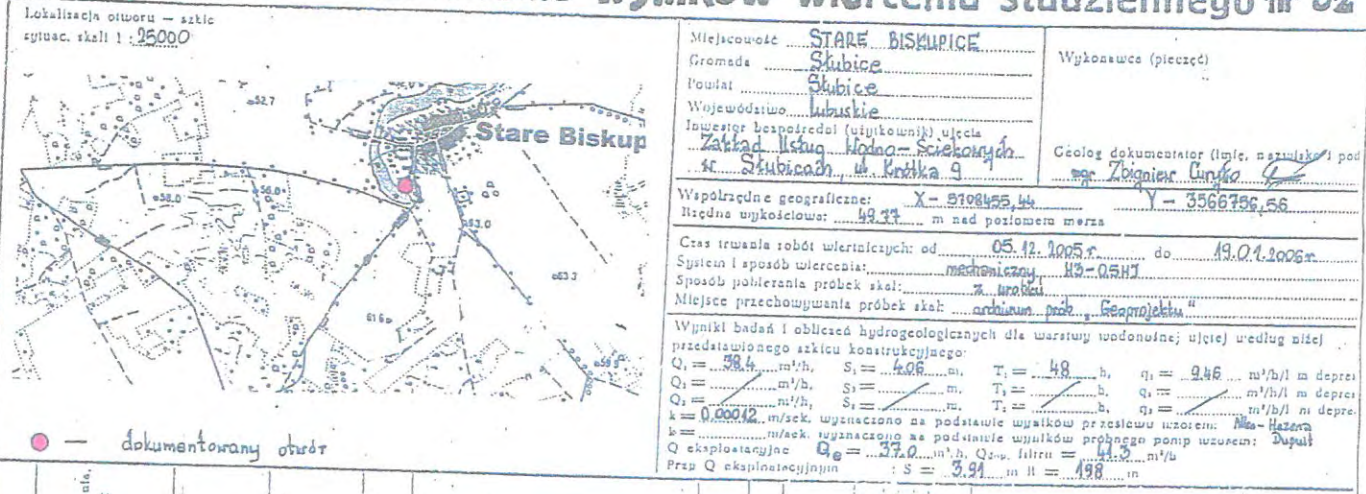 wyników wiercenia studziennego nr
Lokalizacja otworu — szkic
sytuac. skali 1 : 25000
52.7
Stare Biskup
56.0
58.0
53.0
63.3
61.6
● — dokumentowany otwór
Miejscowość STARE BISKUPICE
Gromada Słubice
Powiat Słubice
Województwo lubuskie
Inwestor bezpośredni (użytkownik) ujęcia
Zakład Usług Wodno-Ściekowych
w Słubicach, ul. Krótka 9
Wykonawca (pieczęć)
Geolog dokumentator (imię, nazwisko i pod
mgr Zbigniew
Współrzędne geograficzne: X - 5708455,44 Y - 3566756,56
Rzędna wysokościowa: 49.77 m nad poziomem morza
Czas trwania robót wiertniczych: od 05.12.2005 r. do 19.01.2006 r.
System i sposób wiercenia: mechaniczny,
Sposób pobierania próbek skał: z urobku
Miejsce przechowywania próbek skał: archiwum prób „Geoprojektu"
Wyniki badań i obliczeń hydrogeologicznych dla warstwy wodonośnej ujętej według niżej
przedstawionego szkicu konstrukcyjnego:
Q₁ = 38.4 m³/h, S₁ = 4.06 m, T₁ = 48 h, q₁ = 9.46 m³/h/1 m depre
Q₂ = m³/h, S₂ = m, T₂ = h, q₂ = m³/h/1 m depre
Q₃ = m³/h, S₃ = m, T₃ = h, q₃ = m³/h/1 m depre
k = 0.00012 m/sek. wyznaczono na podstawie wyników przesiewu wzorem: Hazena
k = m/sek. wyznaczono na podstawie wyników próbnego pomp wzorem: Dupuit
Q eksploatacyjne Qe = 37.0 m³/h, Q dop. filtru = 41.3 m³/h
Przy Q eksploatacyjnym : S = 3.91 m R = 198 m